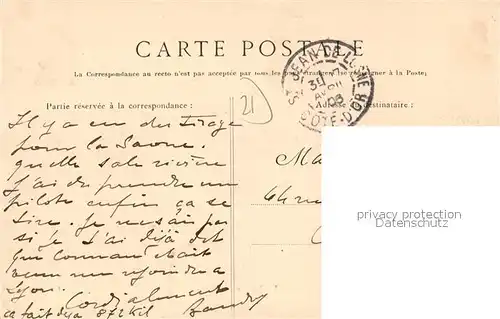 CARTE POSTALE
La Correspondance au recto n'est pas acceptée par tous les pays étrangers (se renseigner à la Poste)
ST JEAN DE LOSNE
30
AVRIL
06
CÔTE-D'OR
Partie réservée à la correspondance :
Adresse du destinataire :
21
Il y a eu du tirage
pour la Saone.
quelle sale rivière
J'ai du prendre un
pilote enfin ça se
tire. Je ne sais pas
si je t'ai déjà dit
que
venu me rejoindre a
Lyon.
Cordialement
ça fait deja 872 Kil
Ma
64 rue
privacy protection
Datenschutz